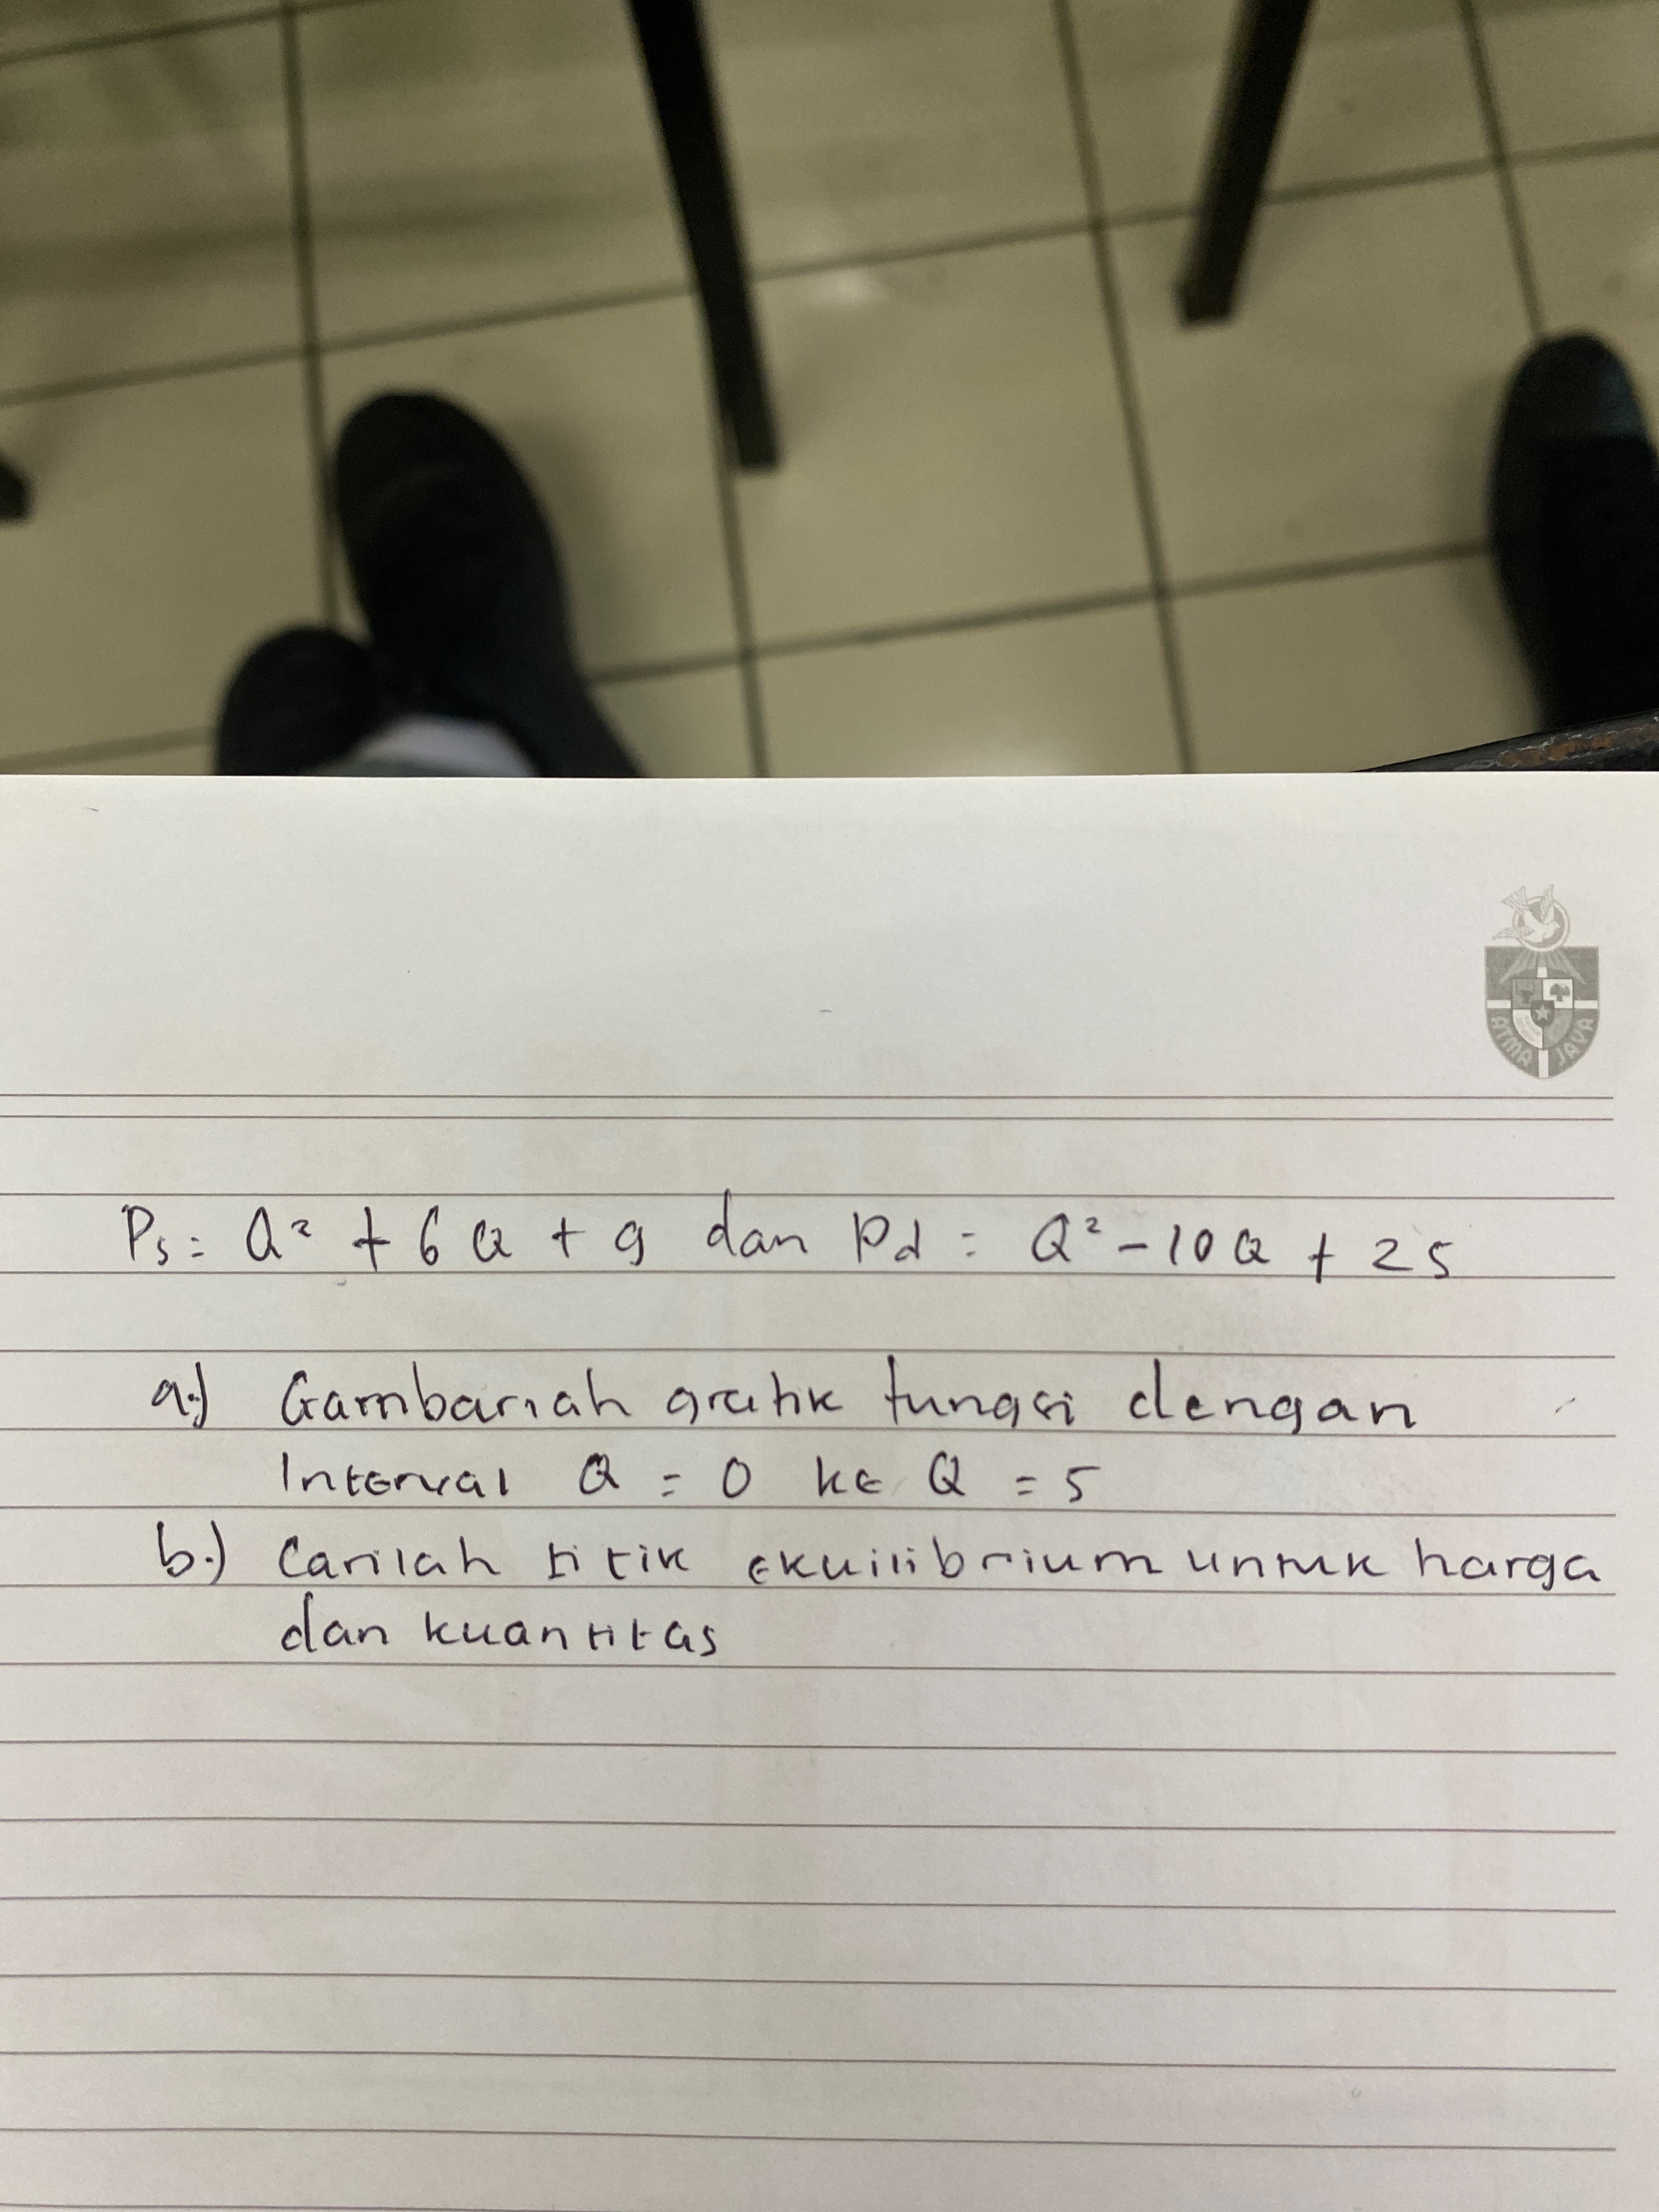 ATMA JAYA
Ps = Q² + 6Q + 9 dan Pd = Q² - 10Q + 25
a.) Gambarlah grafik fungsi dengan
Interval Q = 0 ke Q = 5
b.) Carilah titik ekuilibrium untuk harga
dan kuantitas